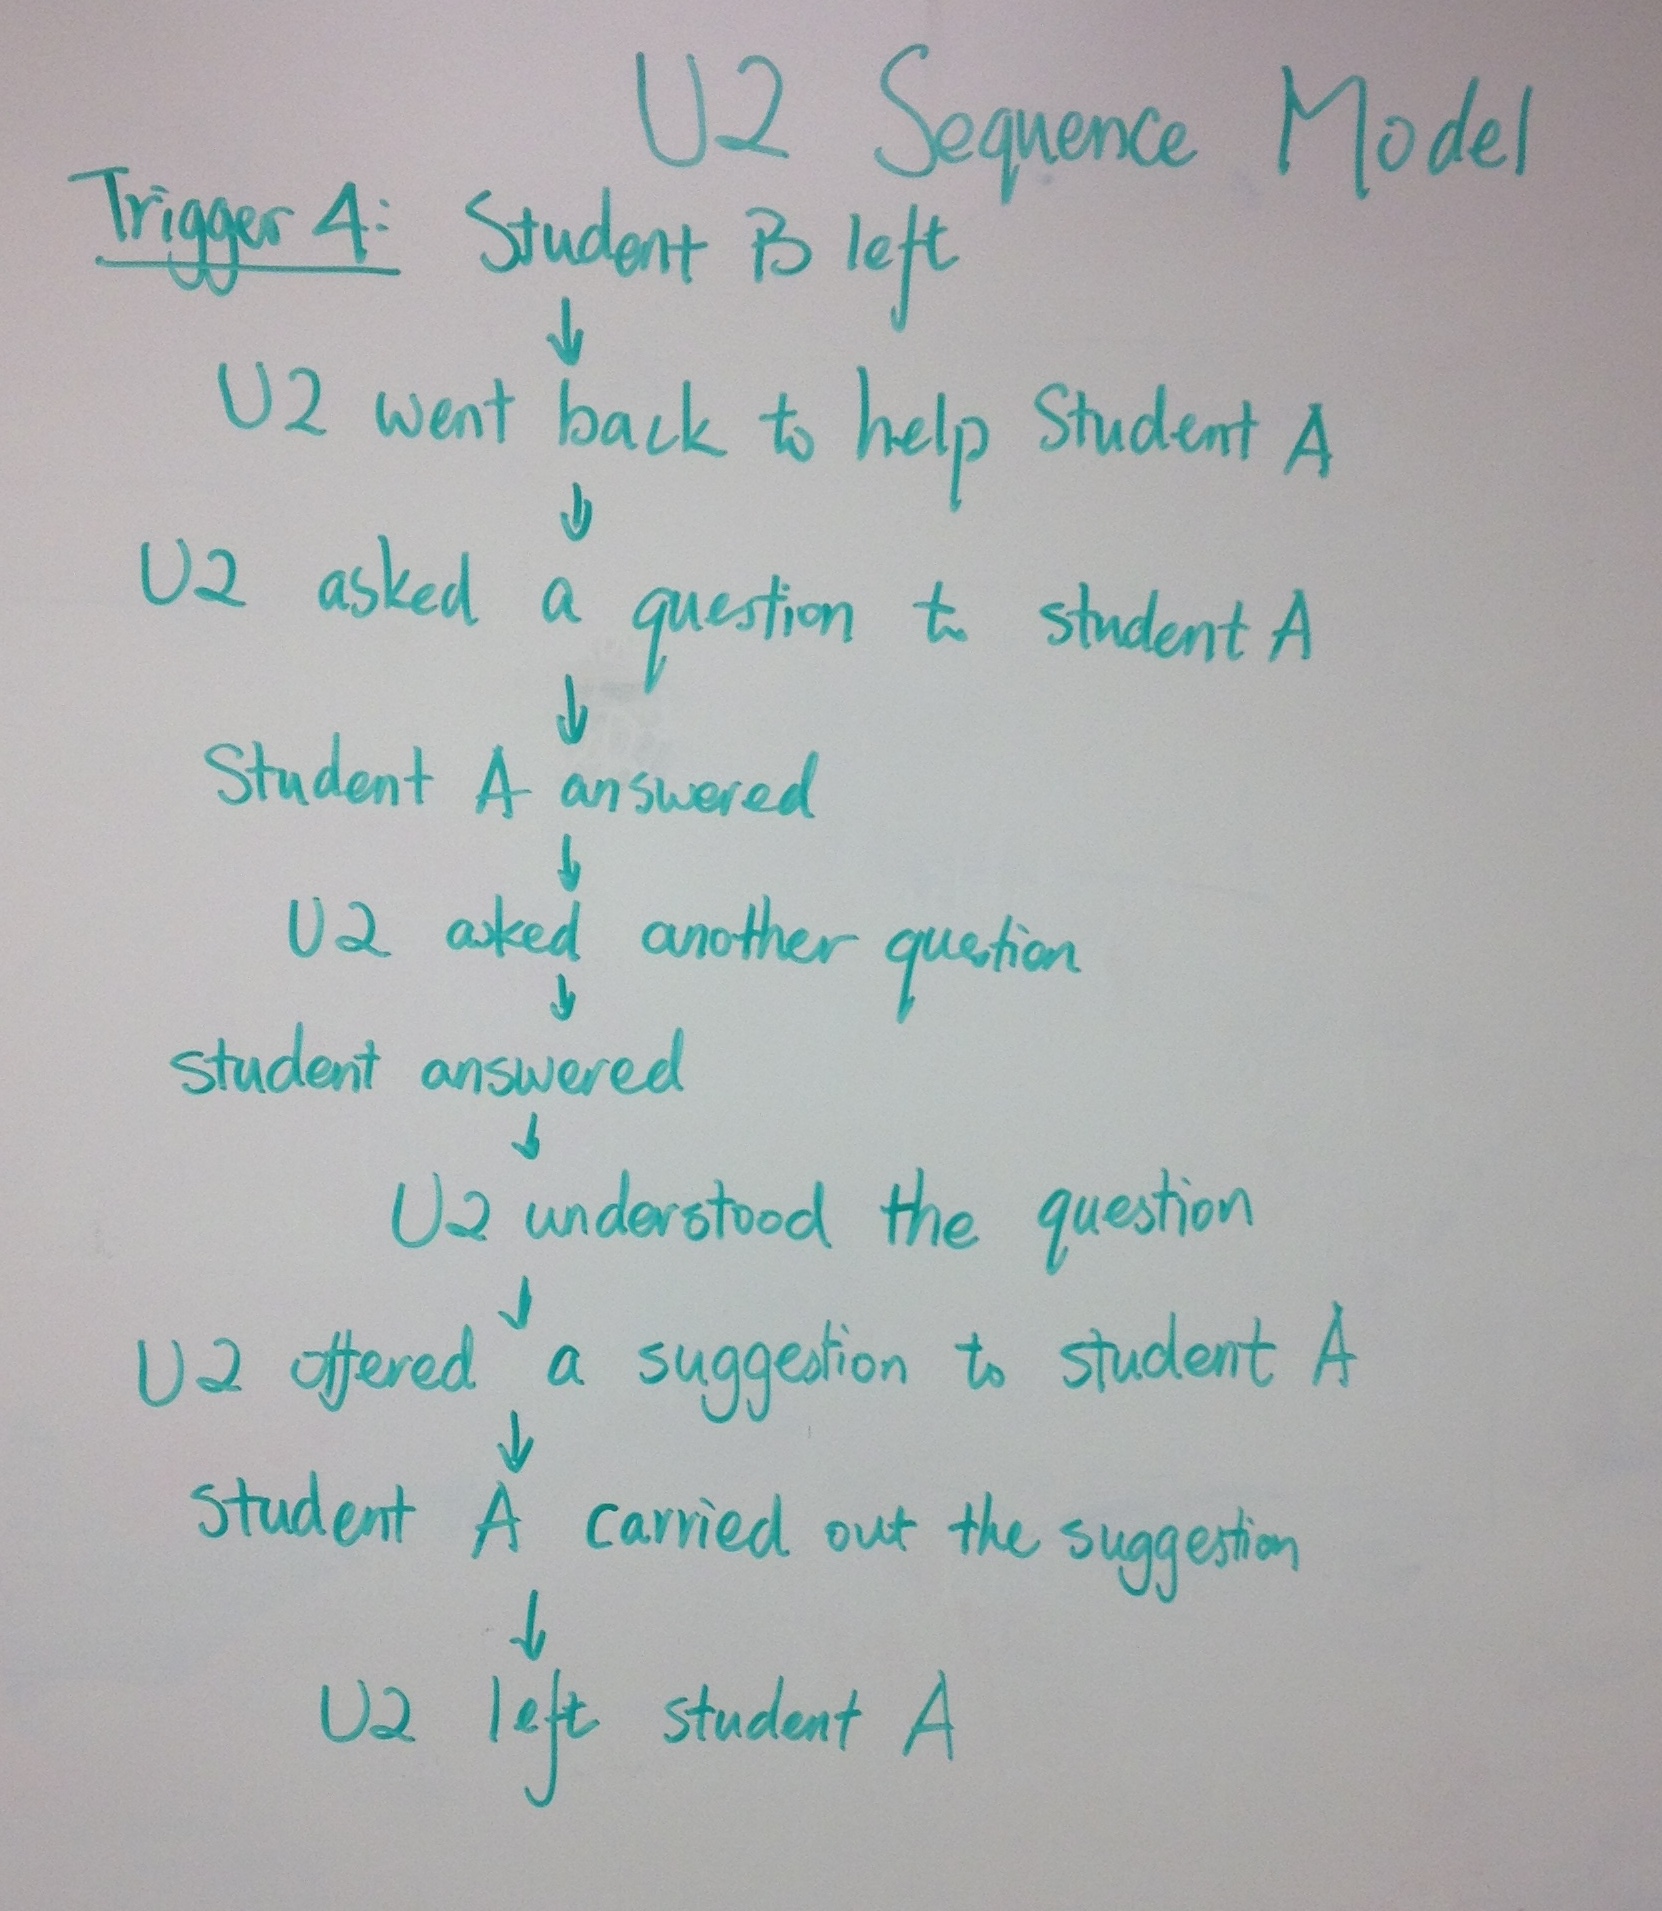 U2 Sequence Model
Trigger 4: Student B left
↓
U2 went back to help Student A
↓
U2 asked a question to student A
↓
Student A answered
↓
U2 asked another question
↓
student answered
↓
U2 understood the question
↓
U2 offered a suggestion to student A
↓
student A carried out the suggestion
↓
U2 left student A